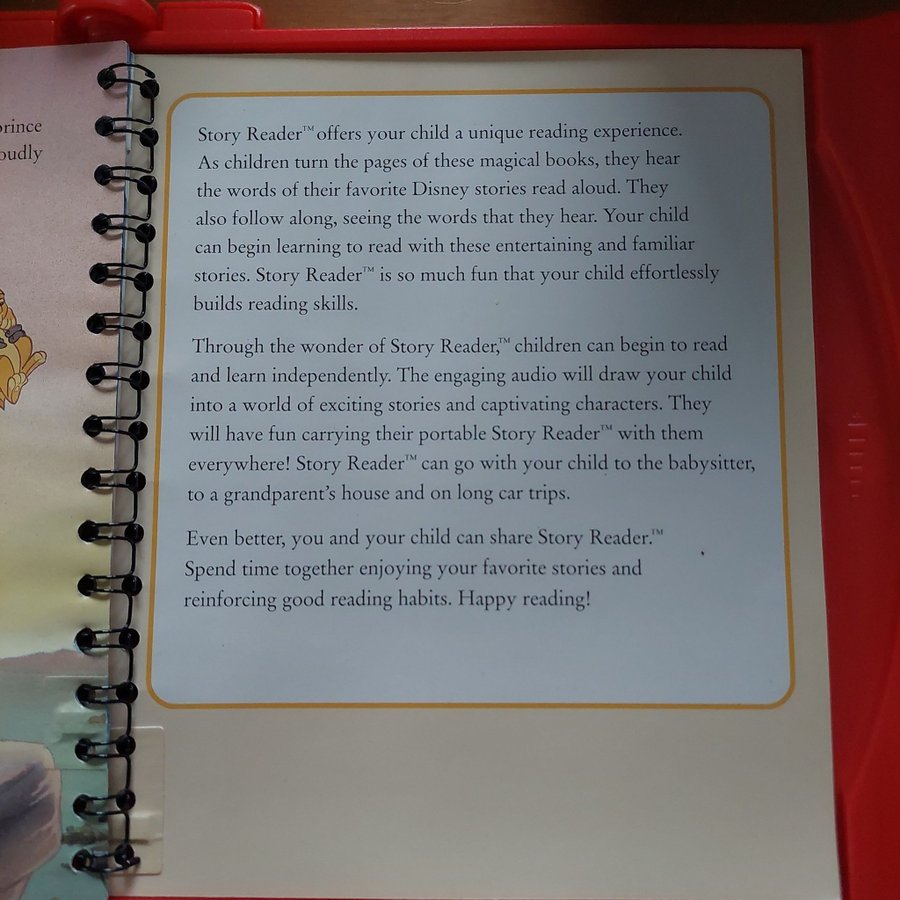 prince
oudly
Story Reader™ offers your child a unique reading experience.
As children turn the pages of these magical books, they hear
the words of their favorite Disney stories read aloud. They
also follow along, seeing the words that they hear. Your child
can begin learning to read with these entertaining and familiar
stories. Story Reader™ is so much fun that your child effortlessly
builds reading skills.
Through the wonder of Story Reader,™ children can begin to read
and learn independently. The engaging audio will draw your child
into a world of exciting stories and captivating characters. They
will have fun carrying their portable Story Reader™ with them
everywhere! Story Reader™ can go with your child to the babysitter,
to a grandparent's house and on long car trips.
Even better, you and your child can share Story Reader.™
Spend time together enjoying your favorite stories and
reinforcing good reading habits. Happy reading!